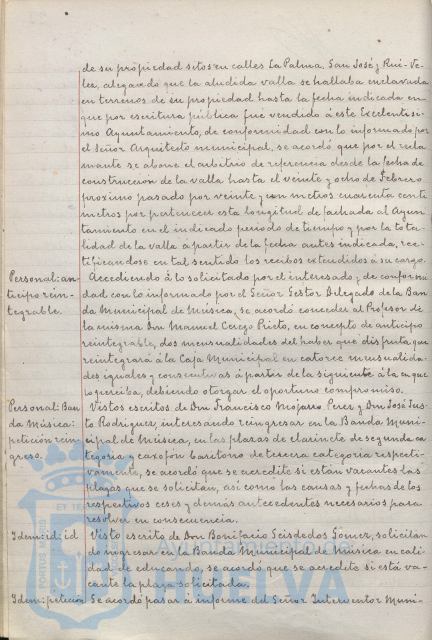 de su propiedad sitos en calles La Palma, San José y Rui-Ve-
les, alegando que la aludida valla se hallaba enclavada
en terrenos de su propiedad hasta la fecha indicada en
que por escritura pública fué vendido á este Excelentísi-
mo Ayuntamiento, de conformidad con lo informado por
el Señor Arquitecto municipal, se acordó que por el recla
mante se abone el arbitrio de referencia desde la fecha de
construcción de la valla hasta el veinte y ocho de Febrero
próximo pasado por veinte y un metros cuarenta centí
metros por pertenecer esta longitud de fachada al Ayun-
tamiento en el indicado periodo de tiempo y por la tota-
lidad de la valla á partir de la fecha antes indicada, rec-
tificandose en tal sentido los recibos extendidos á su cargo.
Personal: an- Accediendo á lo solicitado por el interesado y de conformi
ticipo rein- dad con lo informado por el Señor Gestor Delegado de la Ban
tegrable. da Municipal de Música, se acordó conceder al Profesor de
la misma Don Manuel Cerejo Prieto, en concepto de anticipo
reintegrable, dos mensualidades del haber que disfruta, que
reintegrará á la Caja Municipal en catorce mensualida-
des, iguales y consecutivas á partir de la siguiente á la que
lo perciba, debiendo otorgar el oportuno compromiso.
Personal: Ban Vistos escritos de Don Francisco Mojarro Perez y Don José Jus-
da Música: to Rodriguez, interesando reingresar en la Banda Muni-
petición rein cipal de Música, en las plazas de clarinete de segunda ca
greso. tegoria y saxofón barítono de tercera categoria respecti-
vamente, se acordó que se acredite si están vacantes las
plazas que se solicitan, así como las causas y fechas de los
respectivos ceses y demás antecedentes necesarios para
resolver en consecuencia.
Idem: id: id Visto escrito de Don Bonifacio Seisdedos Gómez, solicitan
do ingresar en la Banda Municipal de Música en cali
dad de educando, se acordó que se acredite si está va-
cante la plaza solicitada.
Idem: petición Se acordó pasar á informe del Señor Interventor Muni-
HUELVA